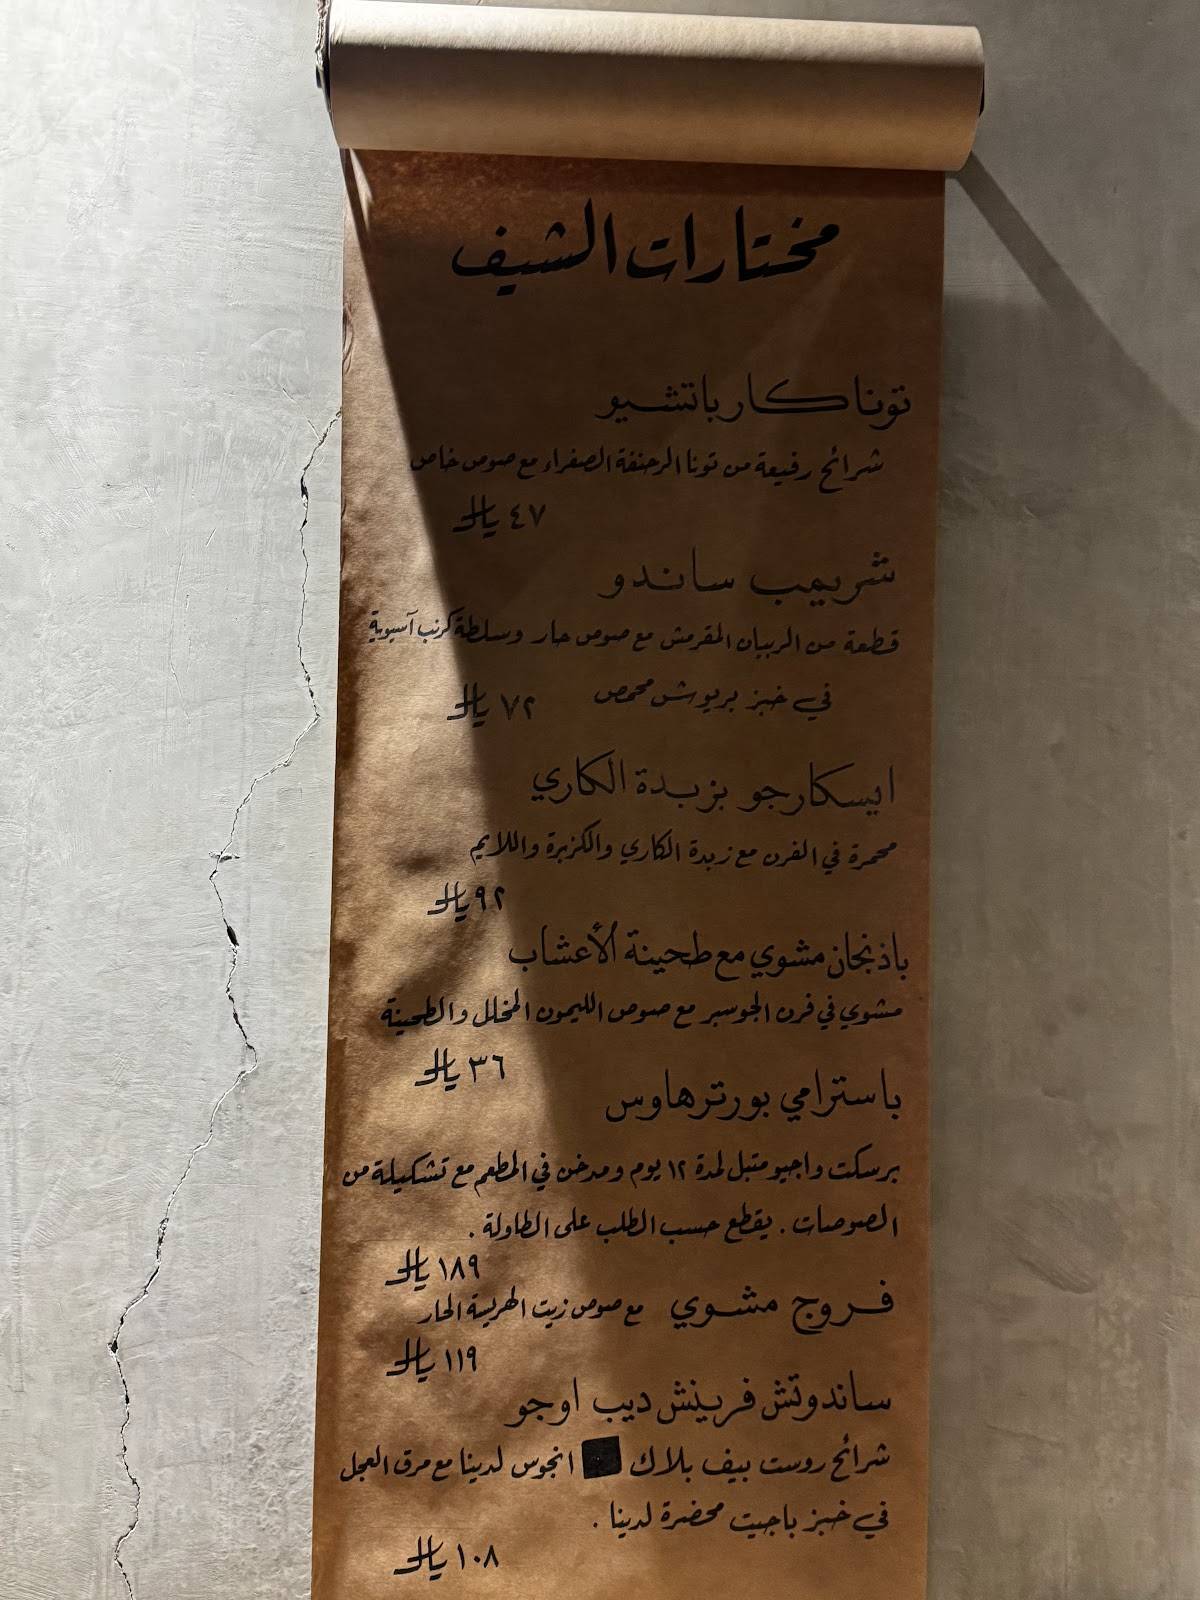 مختارات الشيف
تونا كارباتشيو
شرائح رفيعة من تونا الزعنفة الصفراء مع صوص خاص
٤٧ ⃁
شريمب ساندو
قطعة من الربيان المقرمش مع صوص حار وسلطة كرنب آسيوية
في خبز بريوش محمص ٧٢ ⃁
ايسكارجو بزبدة الكاري
محمرة في الفرن مع زبدة الكاري والكزبرة واللايم
٩٢ ⃁
باذنجان مشوي مع طحينة الأعشاب
مشوي في فرن الجوسبر مع صوص الليمون المخلل والطحينة
٣٦ ⃁
باسترامي بورترهاوس
برسكت واجيو متبل لمدة ١٢ يوم ومدخن في المطعم مع تشكيلة من
الصوصات . يقطع حسب الطلب على الطاولة .
١٨٩ ⃁
فروج مشوي مع صوص زيت الهريسة الحار
١١٩ ⃁
ساندوتش فرينش ديب اوجو
شرائح روست بيف بلاك انجوس لدينا مع مرق العجل
في خبز باجيت محضرة لدينا .
١٠٨ ⃁